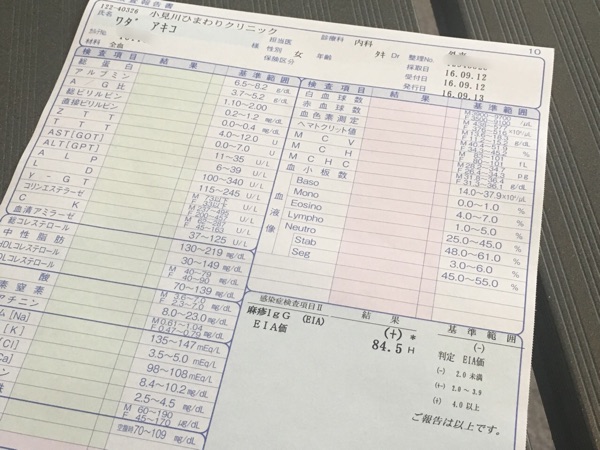 報告書
122-40326
小見川ひまわりクリニック
10
氏名 ワダ アキコ
様
担当医
診療科 内科
Dr
整理No.
性別 女
年齢
保険区分
採取日 16.09.12
受付日 16.09.12
発行日 16.09.13
材料 全血
検査項目 結果 基準範囲
総蛋白 6.5~8.2 g/dL
アルブミン 3.7~5.2 g/dL
A/G比 1.10~2.00
総ビリルビン 0.2~1.2 mg/dL
直接ビリルビン 0.0~0.4 mg/dL
ZTT 4.0~12.0 U
TTT 0.0~7.0 U
AST[GOT] 11~35 U/L
ALT[GPT] 6~39 U/L
ALP 100~340 U/L
LD 115~245 U/L
γ-GT
コリンエステラーゼ
CK
血清アミラーゼ 37~125 U/L
総コレステロール 130~219 mg/dL
中性脂肪 30~149 mg/dL
HDLコレステロール M 40~79 F 40~90 mg/dL
LDLコレステロール 70~139 mg/dL
酸 M 3.6~7.0 mg/dL
素窒素 8.0~23.0 mg/dL
アチニン M 0.61~1.04 F 0.47~0.79 mg/dL
ム[Na] 135~147 mEq/L
[K] 3.5~5.0 mEq/L
[Cl] 98~108 mEq/L
[Ca] 8.4~10.2 mg/dL
ン 2.5~4.5 mg/dL
M 60~190 F 45~170 μg/dL
空腹時70~109 mg/dL
検査項目 結果 基準範囲
白血球数
赤血球数
血色素測定
ヘマトクリット値
MCV
MCH
MCHC
血小板数 14.0~37.9
血液像
Baso 0.0~1.0 %
Mono 4.0~7.0 %
Eosino 1.0~5.0 %
Lympho 25.0~45.0 %
Neutro 48.0~61.0 %
Stab 3.0~6.0 %
Seg 45.0~55.0 %
感染症検査項目Ⅱ 結果 基準範囲
麻疹IgG (EIA) (+) * (-)
EIA価 84.5 H
判定 EIA価
(-) 2.0 未満
(±) 2.0 ~ 3.9
(+) 4.0 以上
ご報告は以上です。